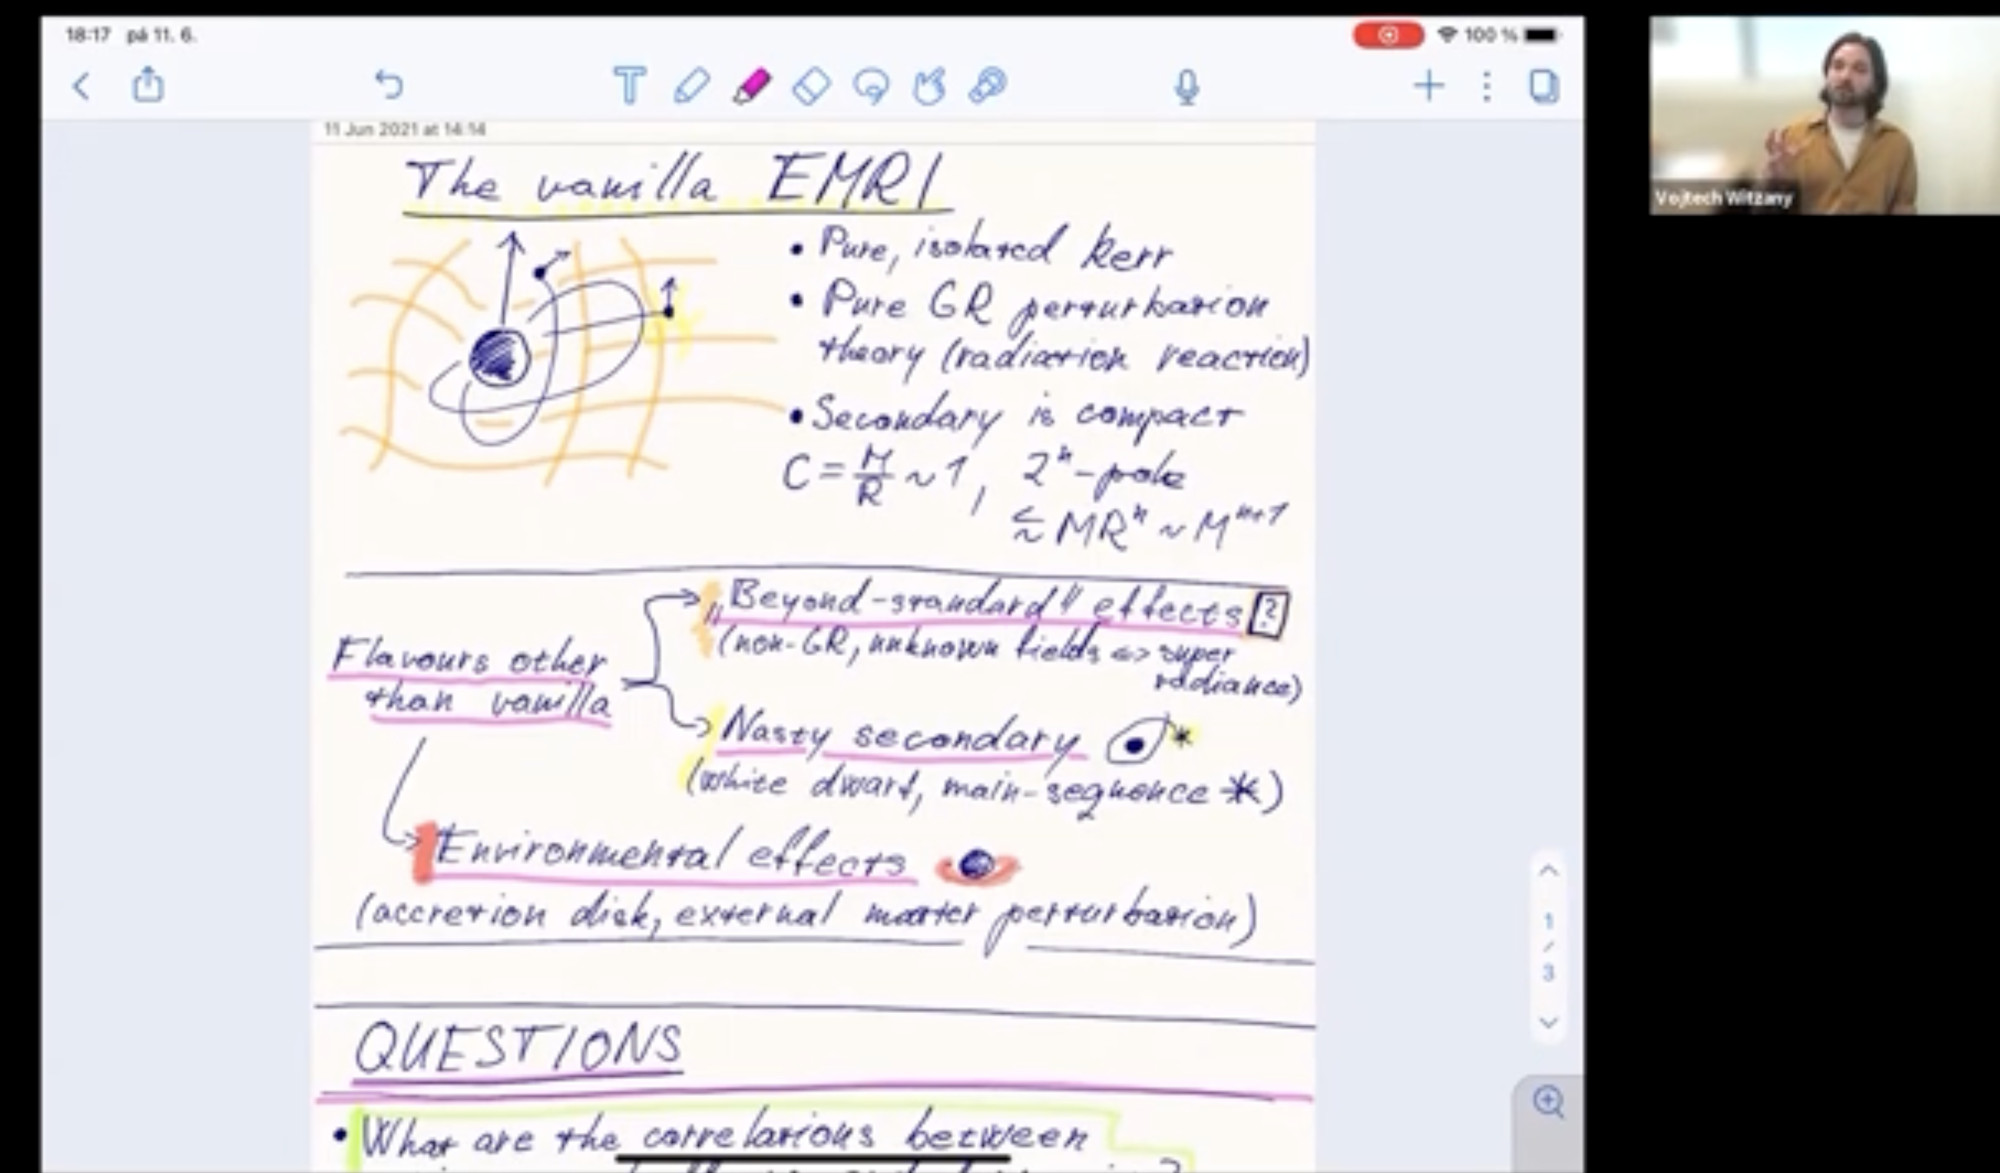 18:17 pá 11. 6.
100 %
11 Jun 2021 at 14:14
The vanilla EMRI
• Pure, isolated Kerr
• Pure GR perturbation
theory (radiation reaction)
• Secondary is compact
C = M/R ~ 1, 2ⁿ-pole
≲ MRⁿ ~ Mⁿ⁺¹
Flavours other
than vanilla
„Beyond-standard" effects ?
(non-GR, unknown fields <=> super
radiance)
Nasty secondary
(white dwarf, main-sequence *)
Environmental effects
(accretion disk, external matter perturbation)
QUESTIONS
• What are the correlations between
1
/
3
Vojtech Witzany